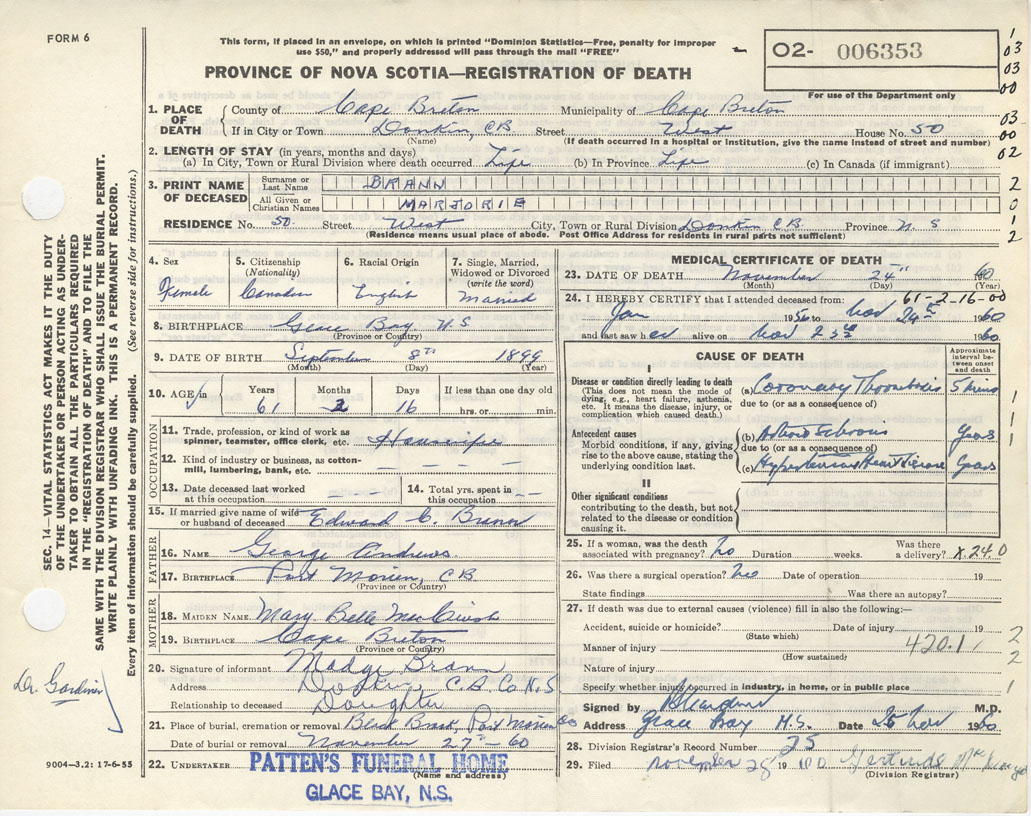 FORM 6
This form, if placed in an envelope, on which is printed "Dominion Statistics—Free, penalty for improper
use $50," and properly addressed will pass through the mail "FREE"
PROVINCE OF NOVA SCOTIA—REGISTRATION OF DEATH
O2- 006353
For use of the Department only
1
03
03
00
03
00
02
2
0
1
2
1. PLACE OF DEATH
County of Cape Breton Municipality of Cape Breton
If in City or Town Donkin, CB Street West House No. 50
(Name) (If death occurred in a hospital or institution, give the name instead of street and number)
2. LENGTH OF STAY (in years, months and days)
(a) In City, Town or Rural Division where death occurred Life (b) In Province Life (c) In Canada (if immigrant)
3. PRINT NAME OF DECEASED
Surname or Last Name BRANN
All Given or Christian Names MARJORIE
RESIDENCE No. 50 Street West City, Town or Rural Division Donkin CB Province N. S
(Residence means usual place of abode. Post Office Address for residents in rural parts not sufficient)
4. Sex Female
5. Citizenship (Nationality) Canadian
6. Racial Origin English
7. Single, Married, Widowed or Divorced (write the word) Married
8. BIRTHPLACE Glace Bay N S
(Province or Country)
9. DATE OF BIRTH September 8th 1899
(Month) (Day) (Year)
10. AGE in Years 61 Months 2 Days 16 If less than one day old hrs. or min.
OCCUPATION
11. Trade, profession, or kind of work as spinner, teamster, office clerk, etc. Housewife
12. Kind of industry or business, as cotton-mill, lumbering, bank, etc. — — —
13. Date deceased last worked at this occupation — —
14. Total yrs. spent in this occupation — —
15. If married give name of wife or husband of deceased Edward C. Brann
FATHER
16. NAME George Andrews
17. BIRTHPLACE Port Morien, CB
(Province or Country)
MOTHER
18. MAIDEN NAME Mary Belle
19. BIRTHPLACE Cape Breton
(Province or Country)
20. Signature of informant Madge Brann
Address Donkin C. B. Co N. S
Relationship to deceased Daughter
21. Place of burial, cremation or removal Black Brook, Port Morien
Date of burial or removal November 27th 60
22. UNDERTAKER PATTEN'S FUNERAL HOME
(Name and address)
GLACE BAY, N.S.
MEDICAL CERTIFICATE OF DEATH
23. DATE OF DEATH November 24th 60
(Month) (Day) (Year)
61-2-16-00
24. I HEREBY CERTIFY that I attended deceased from:
Jan 1956 to Nov 24th 1960
and last saw her alive on Nov 23rd 1960
CAUSE OF DEATH
Approximate interval between onset and death
I
Disease or condition directly leading to death
(This does not mean the mode of dying, e.g., heart failure, asthenia, etc. It means the disease, injury, or complication which caused death.)
(a) Coronary Thrombosis 5 mins
due to (or as a consequence of)
Antecedent causes
Morbid conditions, if any, giving rise to the above cause, stating the underlying condition last.
(b) Years
due to (or as a consequence of)
(c) Hypertensive Heart Disease Years
II
Other significant conditions
contributing to the death, but not related to the disease or condition causing it.
1
1
1
1
25. If a woman, was the death associated with pregnancy? No Duration weeks. Was there a delivery? X 24.0
26. Was there a surgical operation? No Date of operation 19
State findings Was there an autopsy?
27. If death was due to external causes (violence) fill in also the following:—
Accident, suicide or homicide? Date of injury 19
(State which)
Manner of injury 420.1
(How sustained)
Nature of injury
Specify whether injury occurred in industry, in home, or in public place
2
2
1
Signed by M.D.
Address Glace Bay N.S. Date 25 Nov 1960
28. Division Registrar's Record Number 25
29. Filed November 28 19 60 Gertrude
(Division Registrar)
SEC. 14—VITAL STATISTICS ACT MAKES IT THE DUTY
OF THE UNDERTAKER OR PERSON ACTING AS UNDER-
TAKER TO OBTAIN ALL THE PARTICULARS REQUIRED
IN THE "REGISTRATION OF DEATH" AND TO FILE THE
SAME WITH THE DIVISION REGISTRAR WHO SHALL ISSUE THE BURIAL PERMIT.
WRITE PLAINLY WITH UNFADING INK. THIS IS A PERMANENT RECORD.
Every item of information should be carefully supplied. (See reverse side for instructions.)
Dr. Gardiner
9004—3.2: 17-6-55